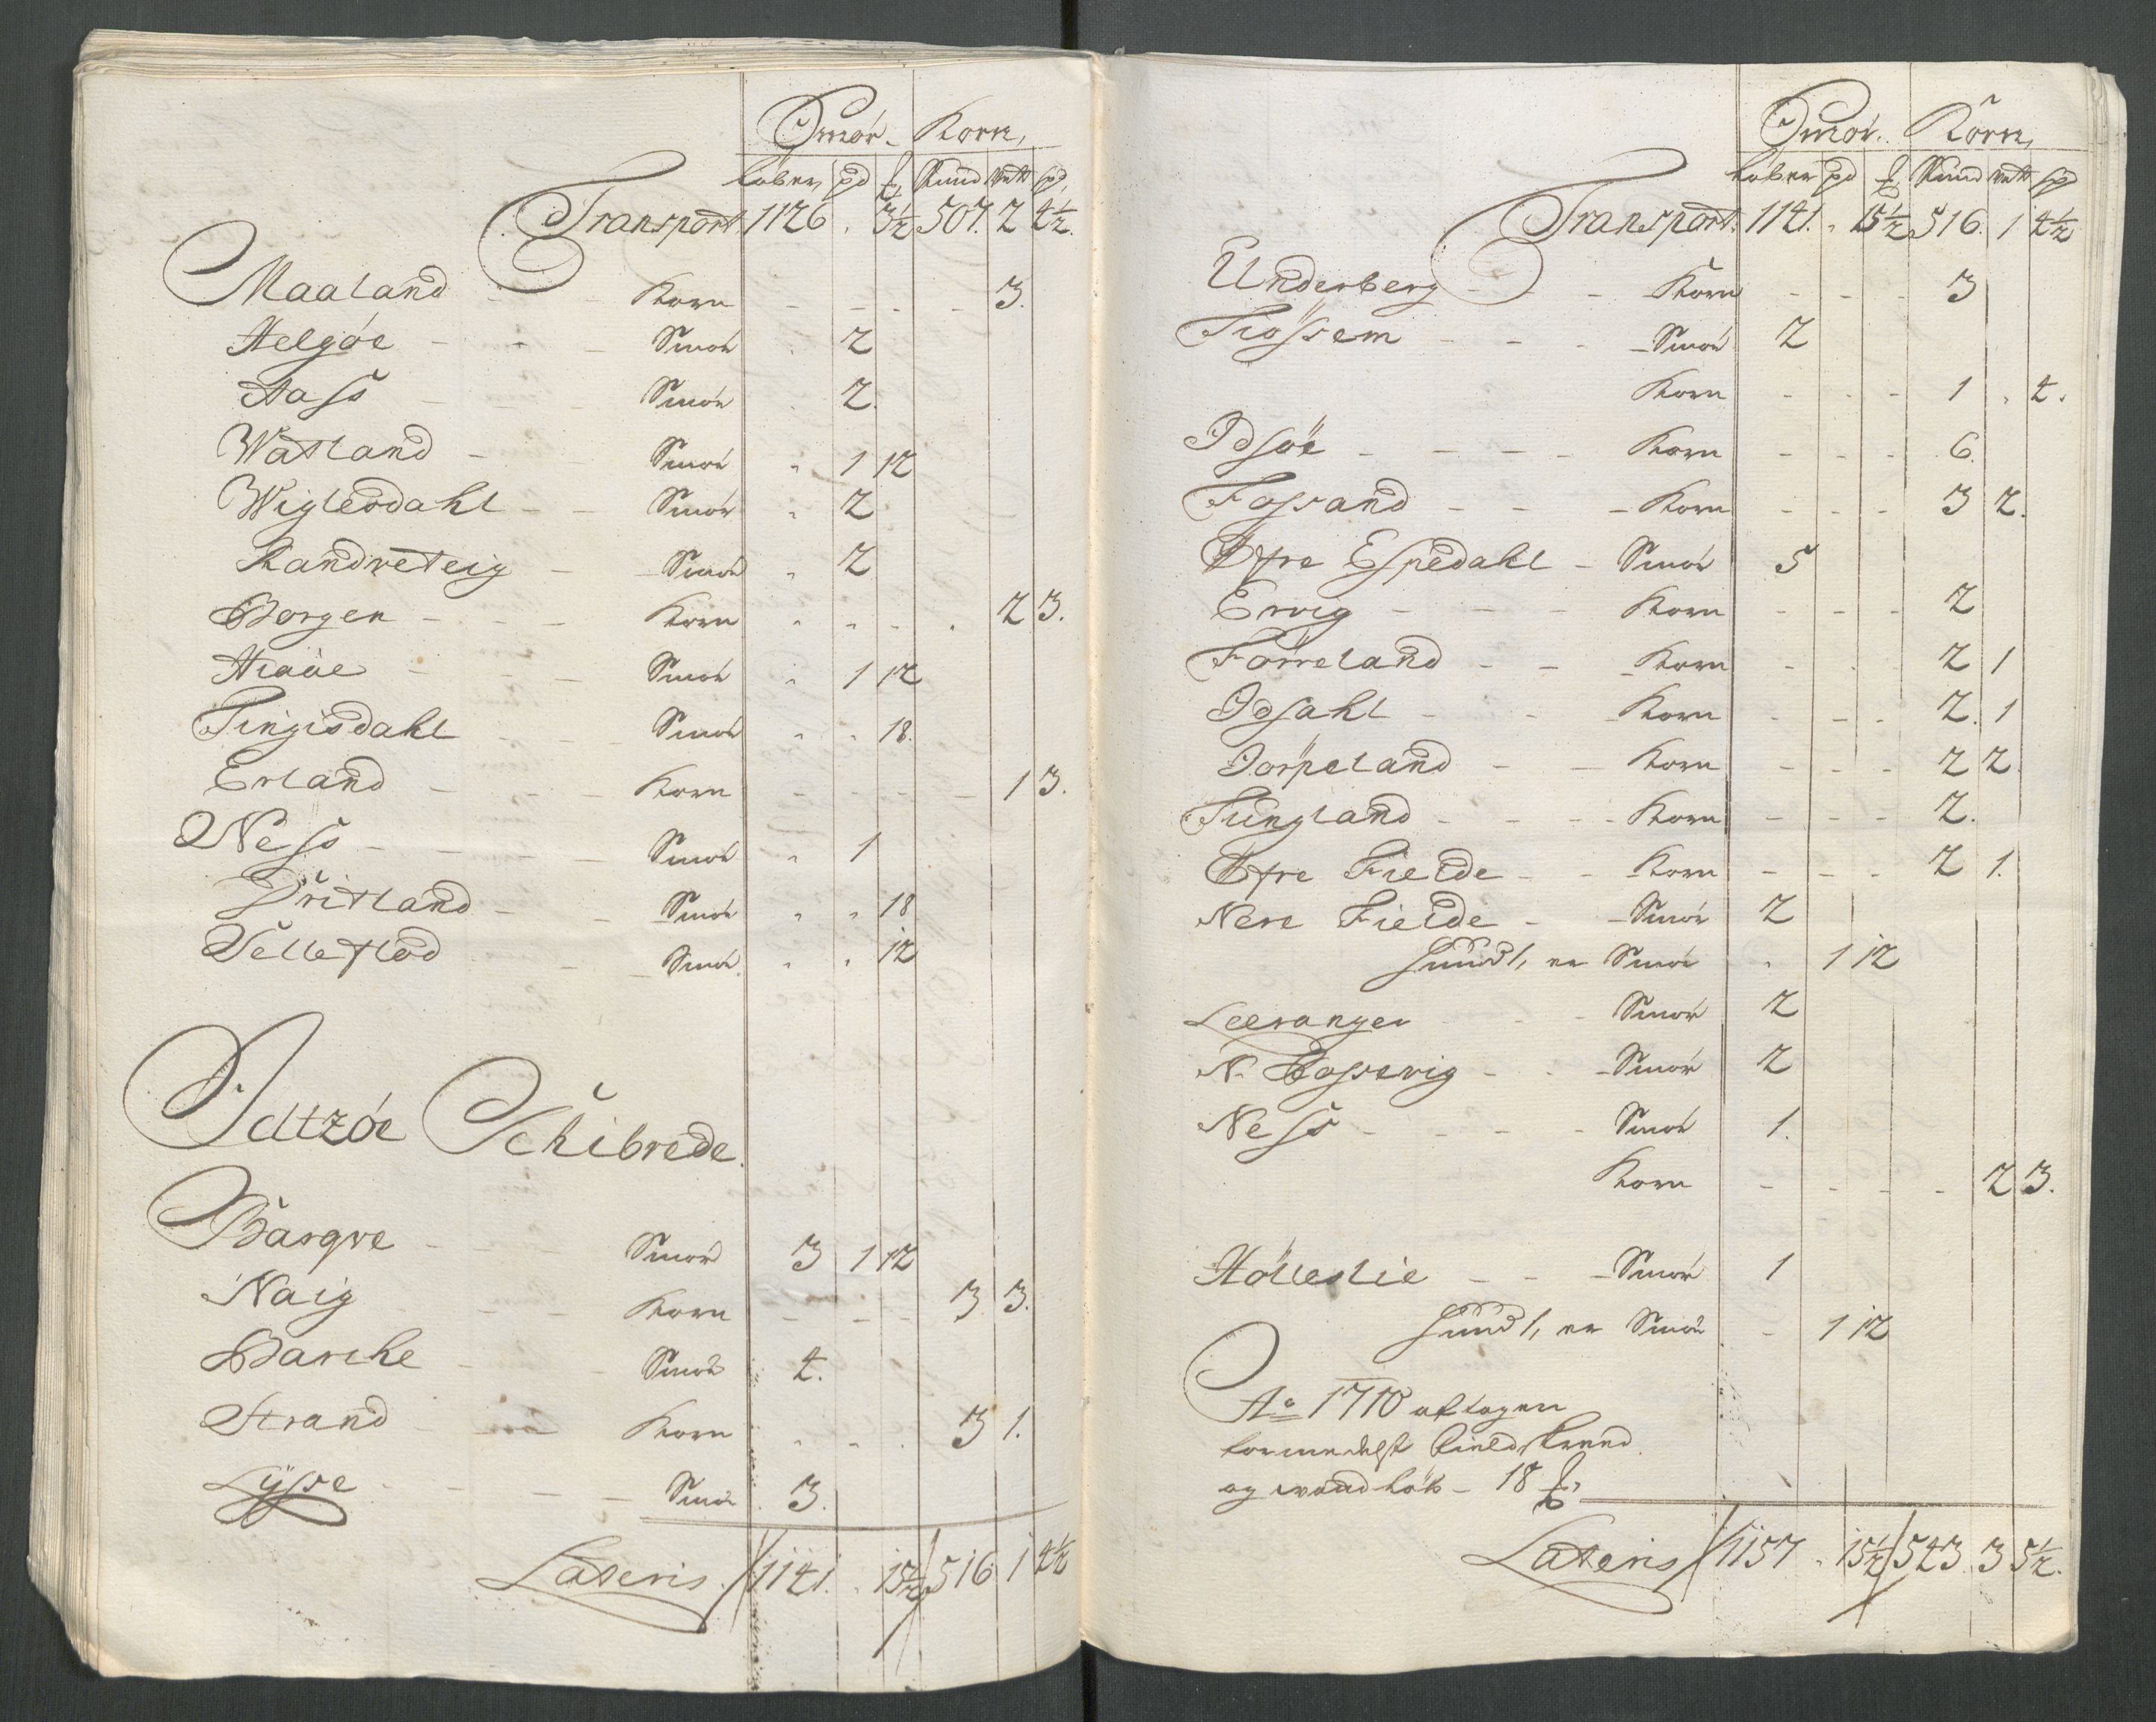 Smör. Korn,
Löber pd ℔ Skind Wett spd
Transport 1126 . 3½ 507. 2 4½.
Maaland - - Korn - - - - 3.
Helgöe - - - Smör . 2
Aass - - Smör . 2.
Watland - - Smör " 1 12
Wiglesdahl - - Smör " 2
Randveteig - Smör " 2
Borgen - - - Korn " " - . 2 3.
Hiaae - - - Smör " 1 12
Tingisdahl - - Smör " " 18.
Erland - - - Korn - - - - - 1 3.
Ness - - - - Smör " 1
Tritland - - Smör " " 18
Velleflod - - Smör " " 12
Idtzöe Schibrede.
Bargve - - - Smör 3 1 12
Naig - - Korn - - - 3 3.
Barche - - Smör 4.
Strand - - Korn " " . 3 1.
Lÿsse - - - - Smör 3.
Lateris. 1141. " 15½ 516 1 4½
Smör. Korn,
Löber pd ℔ Skind Wett spd
Transport. 1141. " 15½ 516. 1 4½
Underberg - - - Korn - - - 3
Tiössem - - - Smör 2
Korn - - - 1 . 4.
Idsöe - - - - Korn - - - 6.
Fossand - - - Korn - - - 3 2.
Öfre Espedahl - Smör 5
Ervig - - - Korn - - - 2
Förreland - - Korn - - 2 1
Idsahl - - Korn - - - 2. 1
Jörpeland - - Korn - - - 2 2.
Tungland - - - - Korn - - - 2.
Öfre Fielde - - Korn - - - 2 1.
Nere Fielde - - Smör 2
er Smör " 1 12
Leeranger - - Smör 2
N. Bossevig - - - Smör 2
Ness - - - - Smör 1.
Korn - - - - 2 3.
Hölleslie - - - Smör 1
er Smör - 1 12
Ao 1710 aftagen
formedelst Field skreed
og vand löb - 18 ℔,
Lateris 1157 " 15½ 543. 3 5½.